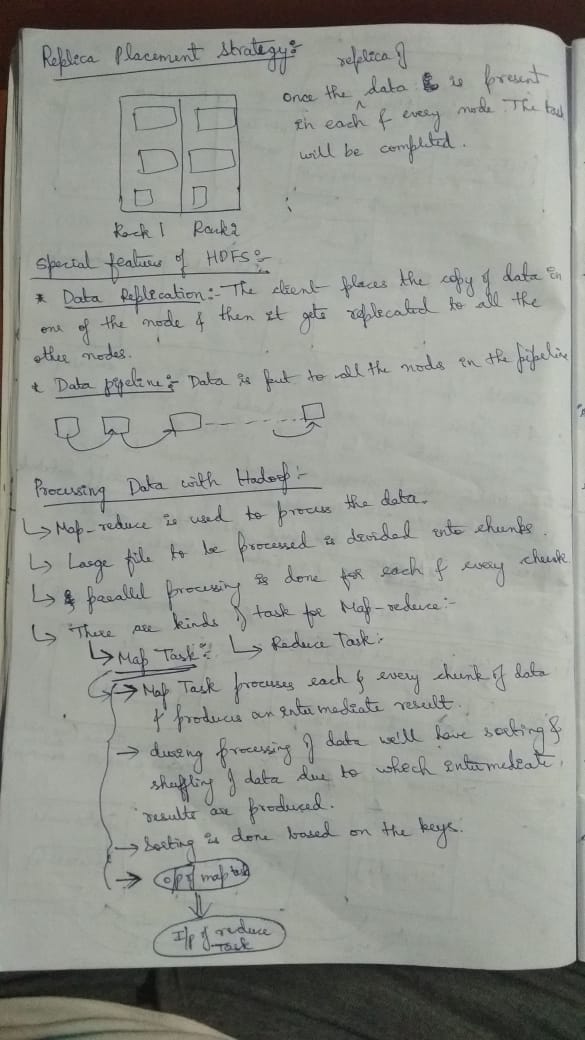 Replica Placement Strategy:-
replica of
once the data is present
in each & every node The task
will be completed.
Rack 1 Rack 2
Special features of HDFS:-
* Data Replication:- The client places the copy of data in
one of the node & then it gets replicated to all the
other nodes.
* Data pipeline:- Data is put to all the nodes in the pipeline
Processing Data with Hadoop:-
↳ Map-reduce is used to process the data.
↳ Large file to be processed is divided into chunks.
↳ parallel processing is done for each & every chunk
↳ There are kinds of task for Map-reduce:-
↳ Map Task:- ↳ Reduce Task:-
→ Map Task processes each & every chunk of data
& produces an intermediate result.
→ during processing of data we'll have sorting &
shuffling of data due to which intermediate
results are produced.
→ Sorting is done based on the keys.
→ O/p of map task
I/p of reduce
task